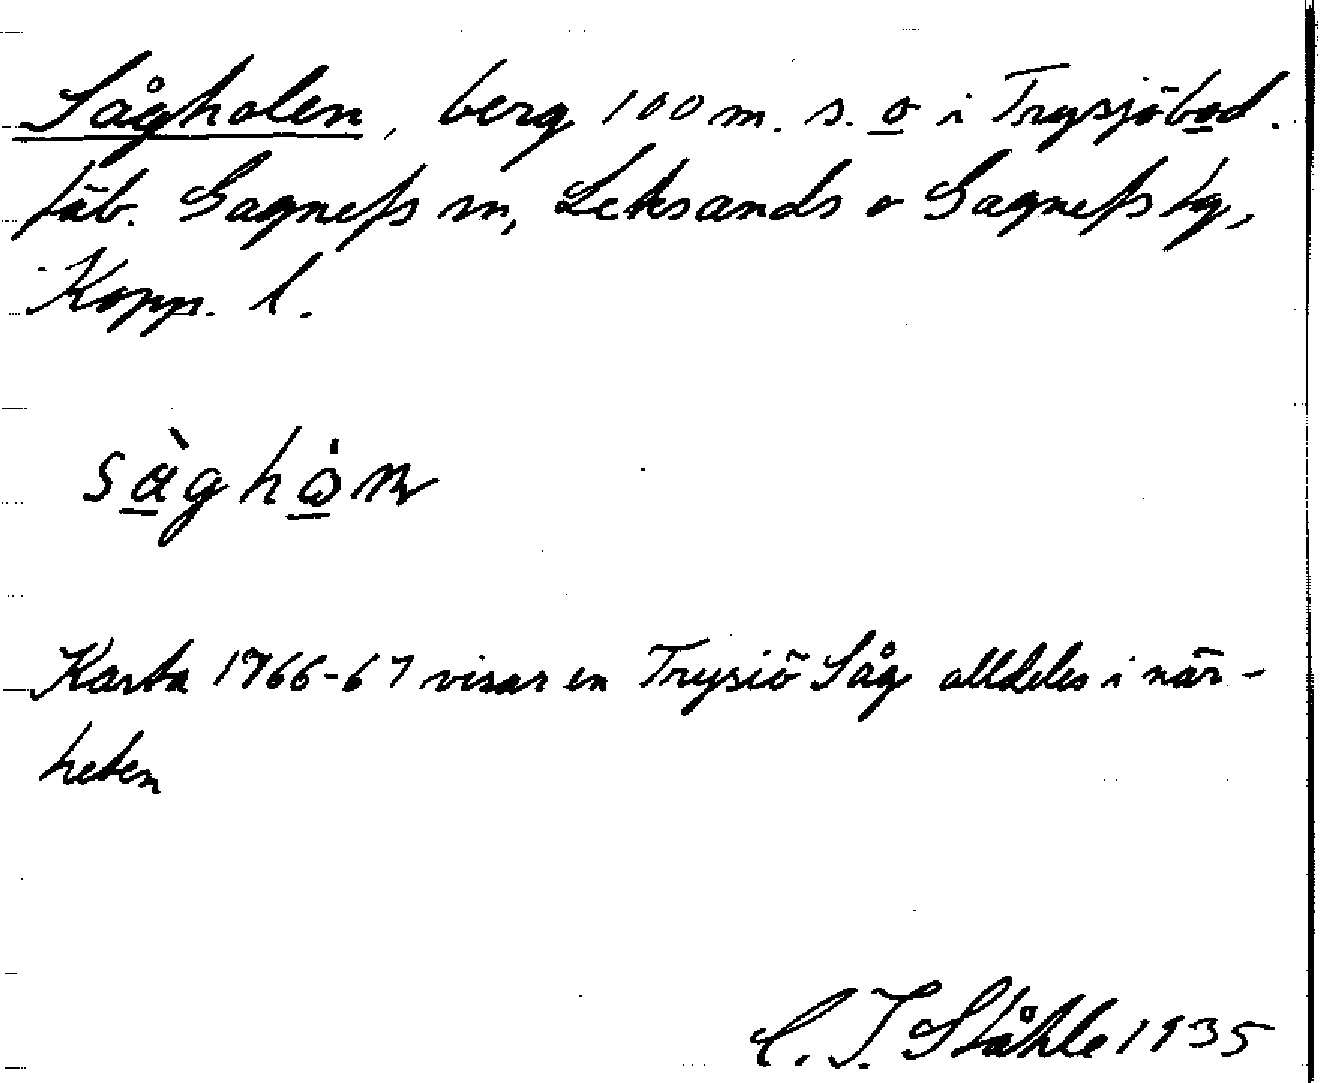 Sågholen, berg 100 m. s. o i Trysjöbod.
fäb. Gagnefs sn, Leksands o Gagnefs tg,
Kopp. l.
Karta 1766-67 visar en Trysiö Såg alldeles i när-
heten
C. I. Ståhle 1935